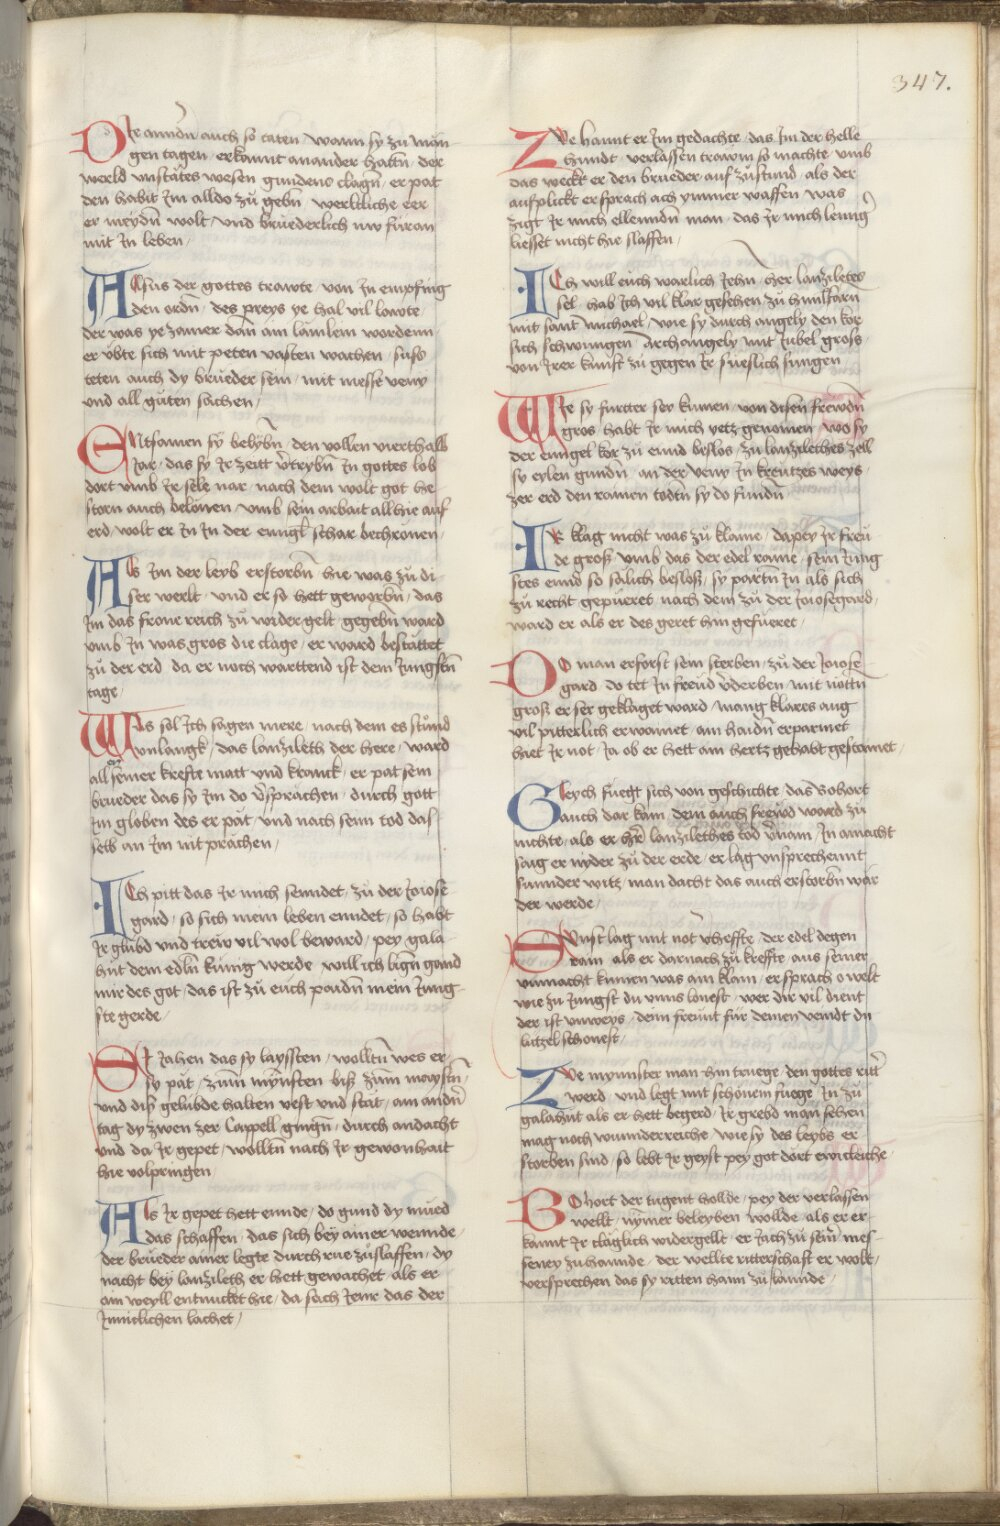 347.
Die anndn auch so taten / wann sy zu man
gen tagen / erkannt anander hattn / der
werld vnstätes wesen gundens clagn / er pat
den habit Im alldo zů gebn / werltliche eer
er meydn wolt / vnd brüederlich nw füran
mit In leben /
Alsus der gottes trawte / von In empfing
den ordn / des preys ye hal vil lawte /
der was ye zamer dan am lämlein worden /
er vbte sich mit peten vasten wachen / suss
teten auch dy brüeder sein / mit messe veny
vnd all güten sachen /
Entsamen sy belybn / den vollen vierthalb
Jar / das sy Ir zeitt v̄trybn In gottes lob
dort vmb Ir sele nar / nach dem wolt got he
storn auch belonen / vmb sein arbait all hie auf
erd / wolt er In In der enngl schar bechronen /
Als Im der leyb erstorbn / hie was zů di
ser werlt / vnd er so hett geworbn / das
Im das frone reich zů widergelt / gegebn ward
vmb In was gros die clage / er ward bestättet
zů der erd / da er noch warttend ist dem Jungstn
tage /
Was sol Ich sagen mere / nach dem es stůnd
vnlangk / das lanzileth der here / ward
all seiner krefte matt vnd kranck / er pat sein
brüeder das sy Im do v̄sprachen / durch gott
Im globen des er pät / vnd nach seim tod das
selb an Im nit prächen /
Ich pitt das Ir mich senndet / zů der Joiose
gard / so sich mein leben enndet / so habt
Ir glübd vnd trew vil wol beward / pey gala
hüt dem edln künig werde / will ich lign gand
mir des got / das ist zů euch paidn mein Jung
ste gerde /
Sy Jahen das sy layssten / wolltn wes er
sy pät / zům mynsten biss zům maystn /
vnd diss gelübde halten vest vnd stät / am andn
tag dy zwen zer Cappell gingn / durch andacht
vnd da Ir gepet / wolltn nach Ir gewonhait
hie volpringen /
Als Ir gepet hett ennde / do gund dy müed
das schaffen / das sich bëy ainer wennde /
der brüeder ainer legte durch rue zůslaffen / dy
nacht bey lanzileth er hett gewachet / als er
ain weyll entnucket hie / da sach Jener das der
Inniclichen lachet /
Ze hannt er Im gedachte / das Im der helle
hundt / verlassen trawm so machte / vmb
das weckt er den brueder auf zůstund / als der
aufplickt er sprach ach ymmer waffen / was
zigt Ir mich ellenndn man / das Ir mich lennig
liesset nicht hie slaffen /
Ich will euch warlich Jehn / her lanziletes
sel / hab Ich vil klar gesehen zů himlfarn
mit sant michael / wie sy durch angely den kor
sich schwungen / Archangely mit Jubel gross
von Irer kunst zů gegen Ir süeslich sungen
Wie sy furtter ser kumen / von disen frewdn
gros / habt Ir mich yetz genomen / wo sy
der enngel kor zů ennd beslos / zů lanziletthes zell
sy eylen gundn / an der veny In kreützes weys /
zer erd den rainen todtn sy do fundn
Ir klag nicht was zů klaine / dapey Ir freü
de gross / vmb das der edel raine / sein Jung
stes ennd so sälich besloss / sy partn In als sich
zů recht gepüeret / nach dem zů der Joiosegard /
ward er als er des geret hin gefüeret /
Do man erforst sein sterben / zů der Joiose
gard / do tet In freüd v̄derben / mit nöttn
gross er ser geklaget ward / mang klares aug
vil pitterlich erwainet / am haidn erparmet
hiet Ir not / Ja ob er hett ain hertz gehabt gestainet /
Gleych füegt sich von geschichte / das Bohort
auch dar kam / dem auch frewd ward zů
nichte / als er her lanzilethes tod v̄nam / In amacht
saig er nyder zů der erde / er lag vnsprechennt
sunnder witz / man dacht das auch erstorbn wär
der werde /
Sunst lag mit not v̄hefftte / der edel degen
rain / als er darnach zů krefftte / aus seiner
vnmacht kumen was am klain / er sprach o welt
wie zů Jungst du vnns lonest / wer dir vil dient
der ist vnweys / denn freünt für deinen veindt du
lützel schonest /
Ze mynnster man hin truege / den gottes rittr
werd / vnd legt mit schönem fuege / In zů
galahüt als er hett begerd / Ir grebd man sehen
mag noch wunnderreiche / wie sy des leybs er
storben sind / so lebt Ir geyst pey got dort ewicleiche /
Bohort der tugent hollde / pey der verlassen
wellt / nymer beleyben wollde / als er er
kannt Ir cläglich widergellt / er Jach zů seim mes
seney zů hannde / der wellte ritterschaft er wolt /
versprechen das sy ritten haim zů lannde /